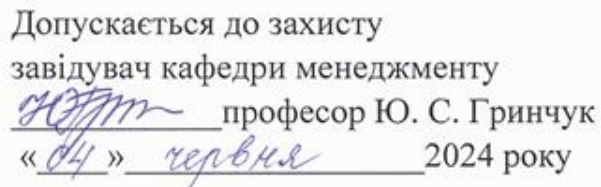 Допускається до захисту
завідувач кафедри менеджменту
професор Ю. С. Гринчук
«04» червня 2024 року